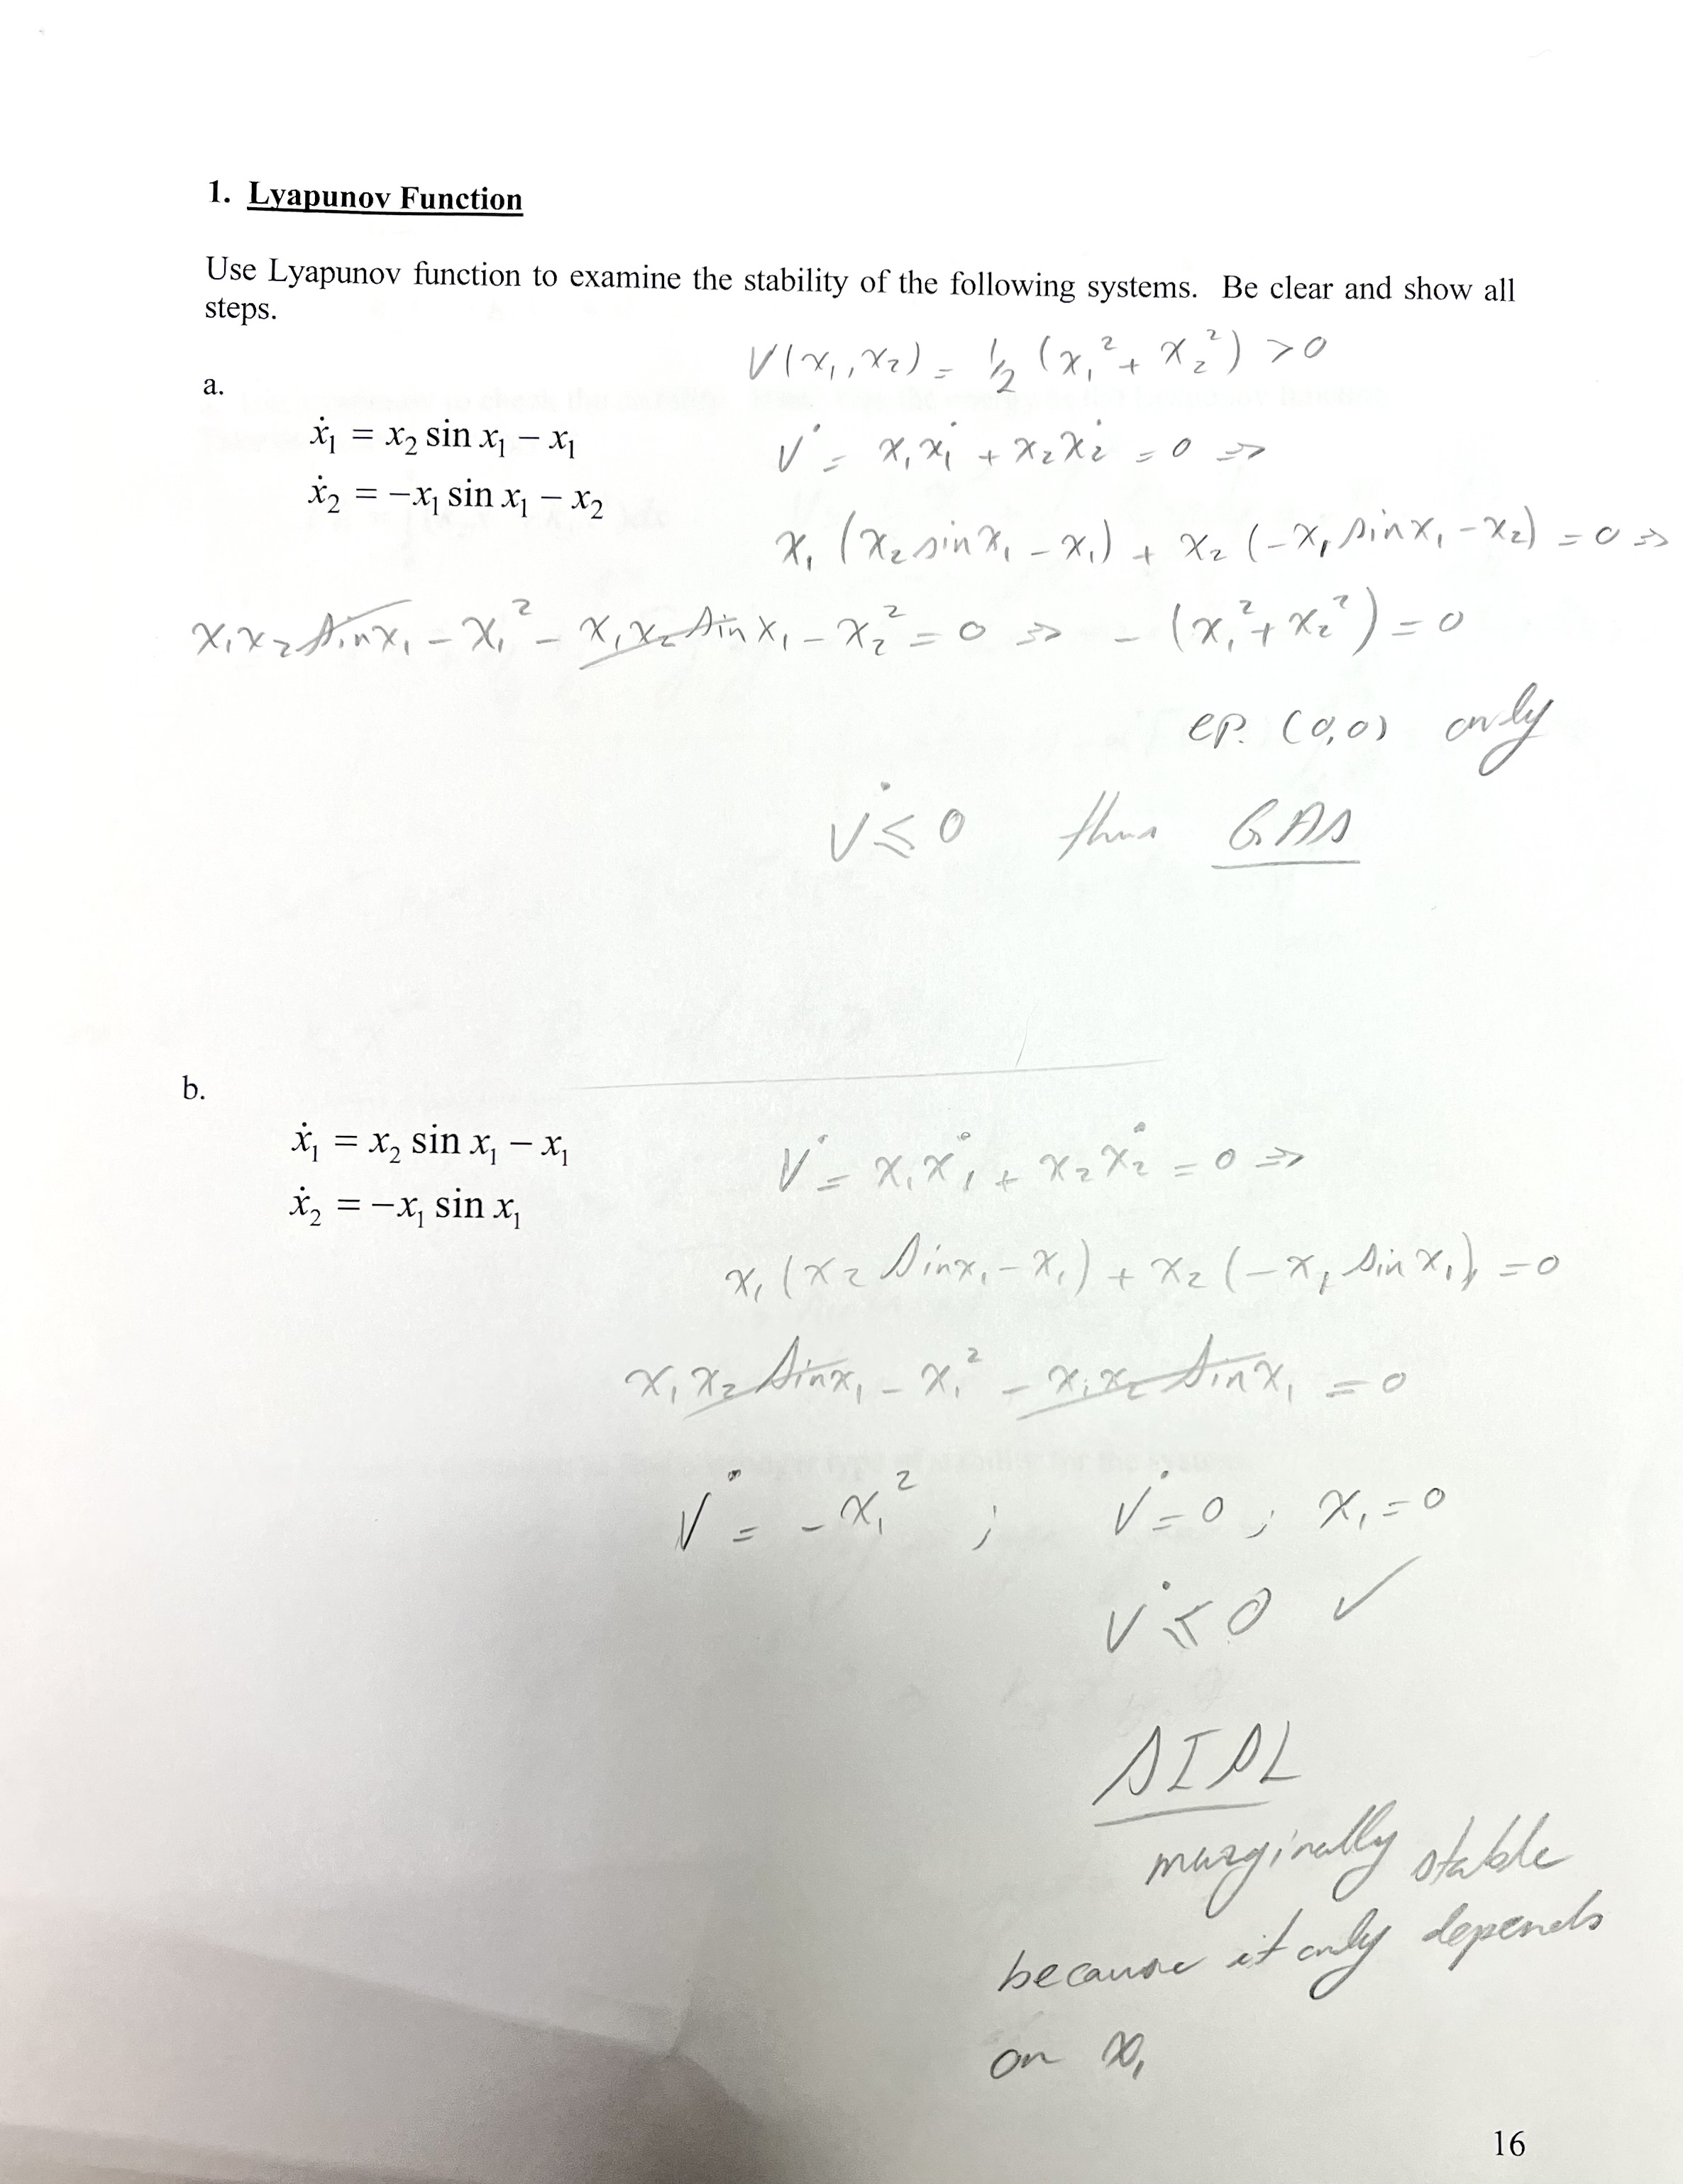 1. Lyapunov Function
Use Lyapunov function to examine the stability of the following systems. Be clear and show all
steps.
V(x₁, x₂) = 1/2 (x₁² + x₂²) > 0
a.
ẋ₁ = x₂ sin x₁ − x₁
ẋ₂ = −x₁ sin x₁ − x₂
V̇ = x₁ẋ₁ + x₂ẋ₂ = 0 =>
x₁ (x₂ sin x₁ − x₁) + x₂ (−x₁ sin x₁ − x₂) = 0 =>
x₁x₂ sin x₁ − x₁² − x₁x₂ sin x₁ − x₂² = 0 => − (x₁² + x₂²) = 0
ep. (0,0) only
V̇ ≤ 0 thus GAS
b.
ẋ₁ = x₂ sin x₁ − x₁
ẋ₂ = −x₁ sin x₁
V̇ = x₁ẋ₁ + x₂ẋ₂ = 0 =>
x₁ (x₂ sin x₁ − x₁) + x₂ (−x₁ sin x₁) = 0
x₁x₂ sin x₁ − x₁² − x₁x₂ sin x₁ = 0
V̇ = − x₁² ; V̇ = 0 ; x₁ = 0
V̇ ≤ 0 ✓
SISL
marginally stable
because it only depends
on x₁
16